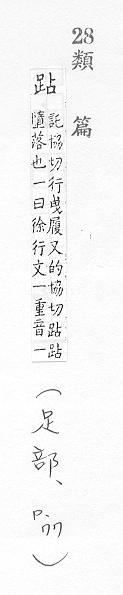 28類篇
跕
託協切行曳履又的協切跕跕
墮落也一曰徐行文一重音一
(足部、P.77)